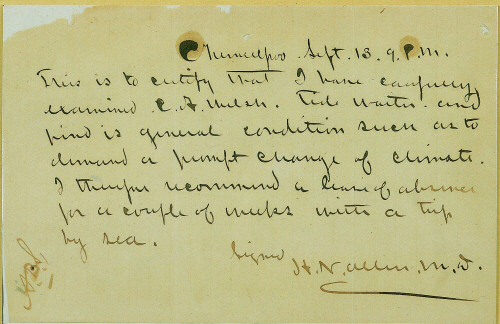 Chemulpoo. Sept. 13. 9. P.M.
This is to certify that I have carefully
examined C. A. Welsh. Tide waiter and
find is general condition such as to
demand a prompt change of climate.
I therefore recommend a leave of absence
for a couple of weeks with a trip
by sea.
Signed
H. N. Allen. M. D.